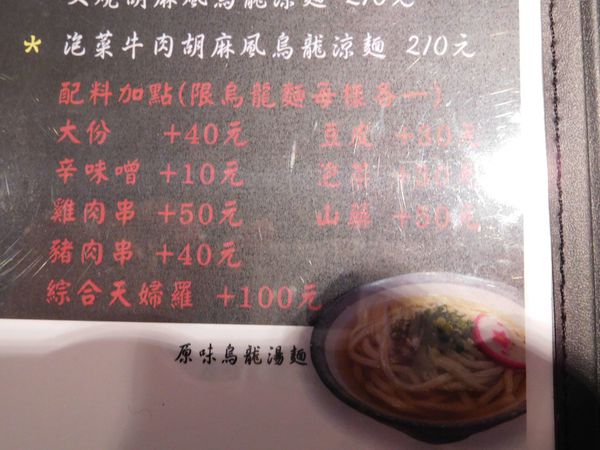 燒胡麻風烏龍涼麵 210元
* 泡菜牛肉胡麻風烏龍涼麵 210元
配料加點(限烏龍麵每樣各一)
大份 +40元 豆皮 +30元
辛味噌 +10元 泡菜 +30元
雞肉串 +50元 山藥 +50元
豬肉串 +40元
綜合天婦羅 +100元
原味烏龍湯麵